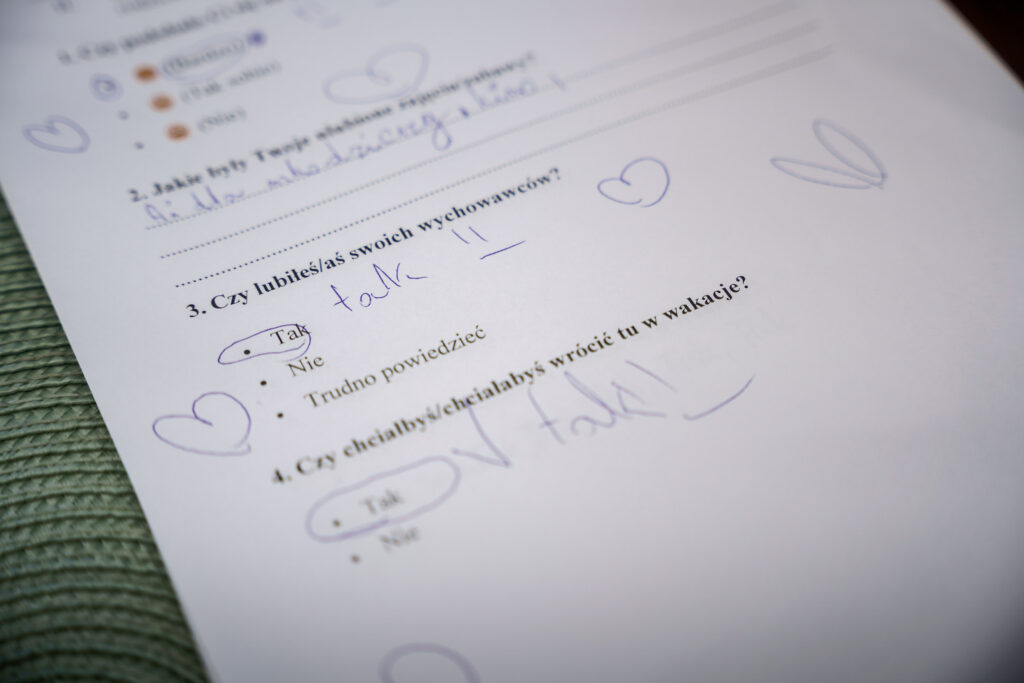 1. Czy
(Bardzo)
(Tak sobie)
(Nie)
2. Jakie były Twoje ulubione zajęcia/zabawy?
kino,
3. Czy lubiłeś/aś swoich wychowawców?
tak!!
Tak
Nie
Trudno powiedzieć
4. Czy chciałbyś/chciałabyś wrócić tu w wakacje?
tak!
Tak
Nie